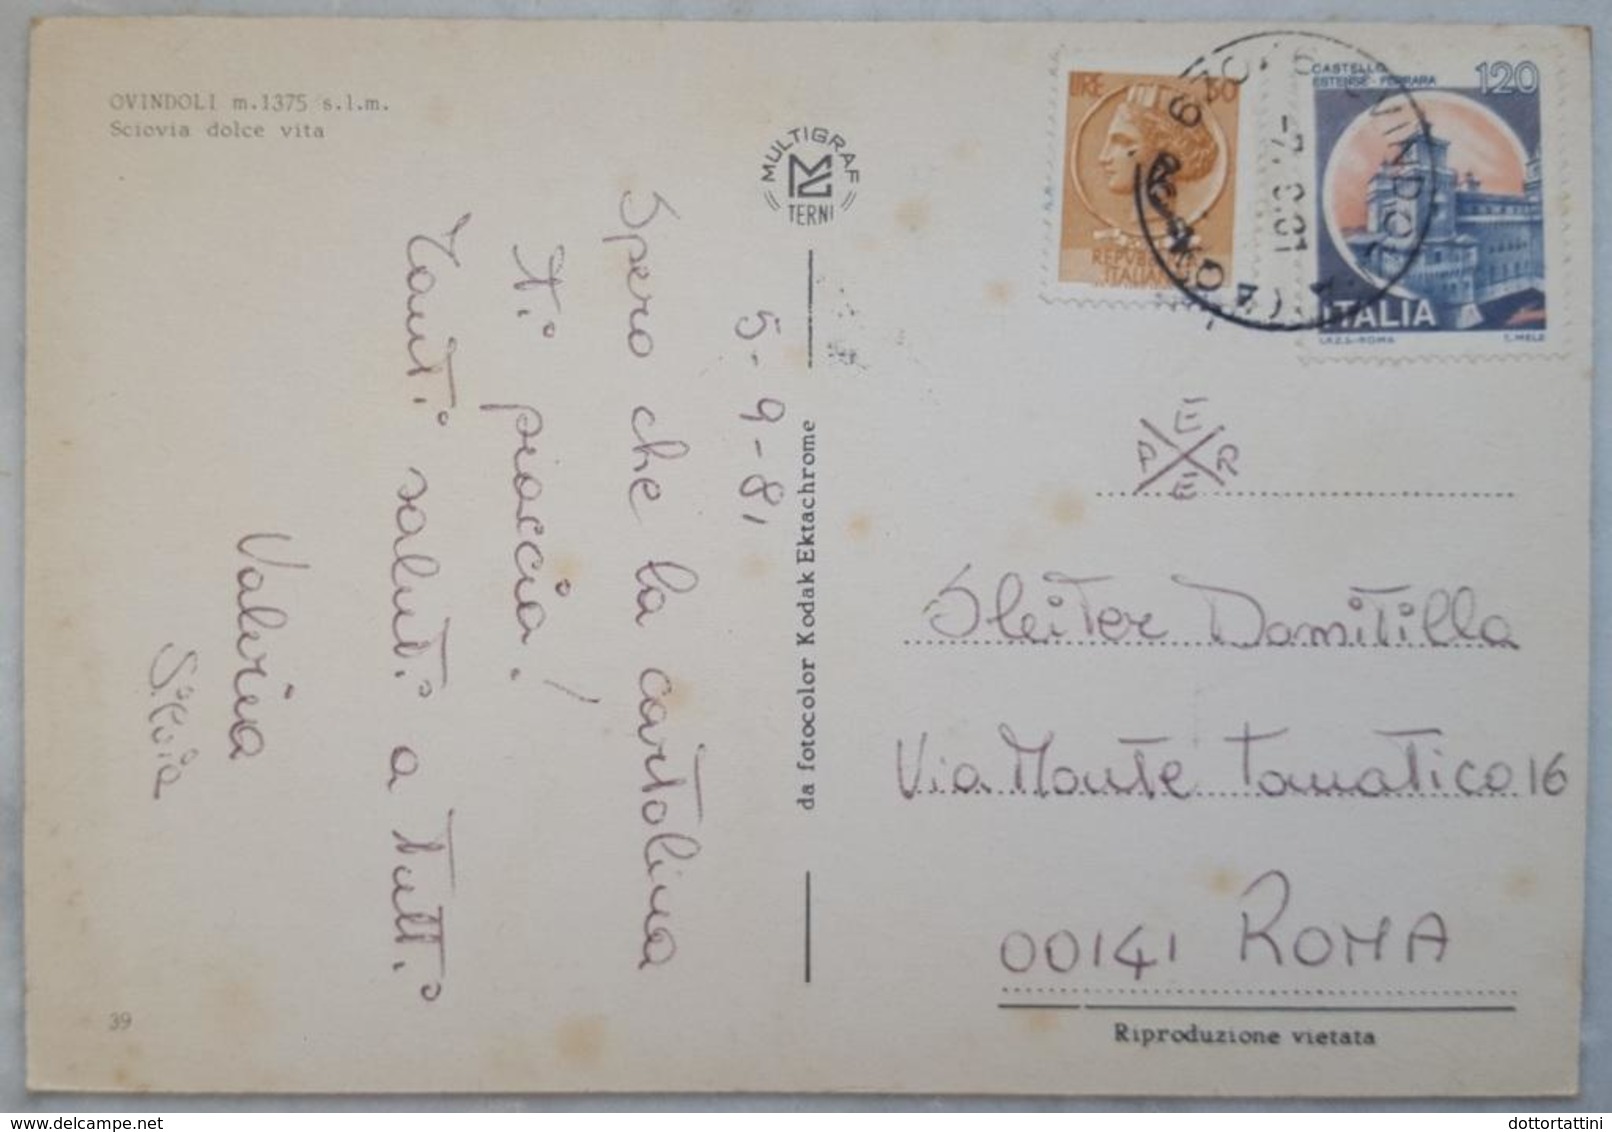 OVINDOLI m.1375 s.l.m.
Sciovia dolce vita
5-9-81
Spero che la cartolina
ti piaccia!
Tanti saluti a tutti
Valeria
Silvia
39
MULTIGRAF
TERNI
da fotocolor Kodak Ektachrome
LIRE 30
REPUBBLICA
ITALIANA
CASTELLO
ESTENSE - FERRARA
120
ITALIA
I.P.Z.S. - ROMA
E. MELE
OVINDOLI
-7.9.81
P E R E
Sleiter Domitilla
Via Monte
16
00141 ROMA
Riproduzione vietata
dottortattini